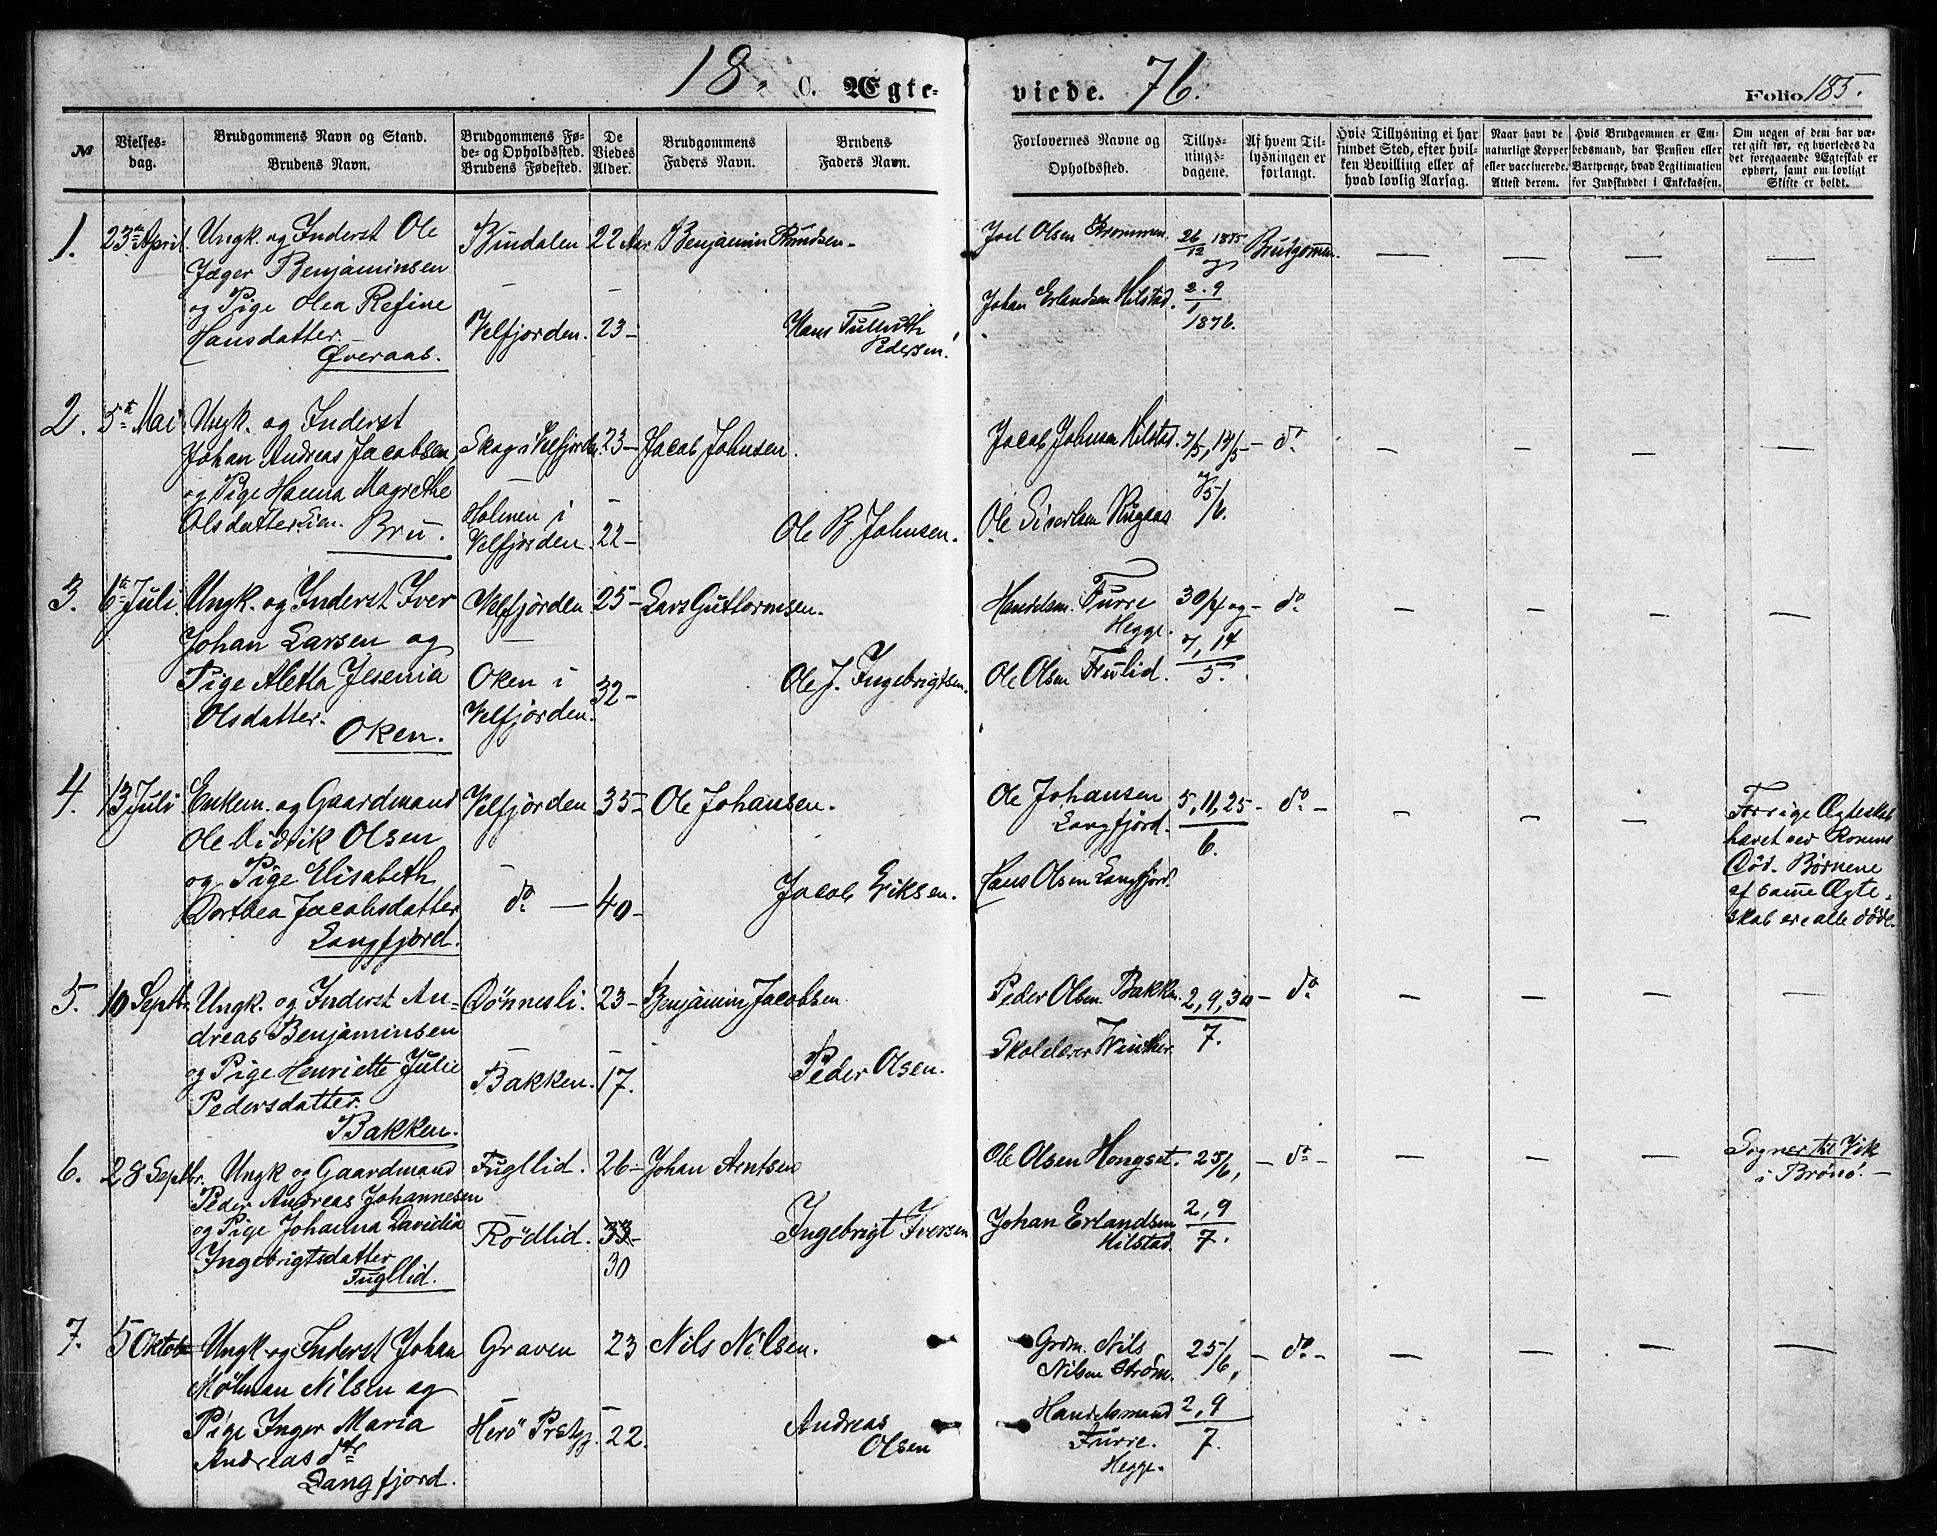 18 C. Ægte-
viede. 76. Folio 185.
№ Vielses-dag. Brudgommens Navn og Stand. Brudens Navn. Brudgommens Fø-de- og Opholdssted. Brudens Fødested. De Viedes Alder. Brudgommens Faders Navn. Brudens Faders Navn.
Forlovernes Navne og Opholdssted. Tillys-nings-dagene. Af hvem Til-lysningen er forlangt. Hvis Tillysning ei har fundet Sted, efter hvil-ken Bevilling eller af hvad lovlig Aarsag. Naar havt de naturligt Kopper eller vaccinerede. Attest derom. Hvis Brudgommen er Em-bedsmand, har Pension eller Vartpenge, hvad Legitimation for Indskuddet i Enkekassen. Om nogen af dem har væ-ret gift før, og hvorledes da det foregaaende Ægteskab er ophørt, samt om lovligt Skifte er holdt.
1. 23de April. Ungk. og Inderst Ole Bindalen 22 Aar Benjamin Knudsen
Jæger Benjaminsen
og Pige Olea Refine
Hansdatter. Velfjorden. 23 – Hans
Pedersen.
Øveraas.
Joel Olsen Brommen. 26/12 1875 Brudgommen. — — — —
og
Johan Erlandsen Hilstad. 2. 9/1
1876.
2. 5te Mai Ungk. og Inderst
Johan Andreas Jacobsen Skog i Velfjorden. 23 – Jacob Johnsen.
og Pige Hanna Magrethe Holmen i
Olsdatter. Velfjorden. 22 – Ole B. Johnsen.
Bru.
Jacob Johnsen Hilstad. 7/5, 14/5 – do – – – –
Ole Sivertsen 5/6.
3. 6te Juli. Ungk. og Inderst Iver Velfjorden 25 – Lars Guttormsen.
Johan Larsen og
Pige Aletta Jesenia Oken i 32 – Ole J. Ingebrigtsen.
Olsdatter. Velfjorden.
Oken.
Handelsm. Furre 30/4 og – do – – – –
Hegge. 7, 14
Ole Olsen Frulid. 5.
4. 13 Juli Enkem. og Gaardmand Velfjorden 35 – Ole Johansen.
Ole Didrik Olsen
og Pige Elisabeth
Dorthea Jacobsdatter do — 40 – Jacob Eriksen.
Langfjord.
Ole Johansen 5, 11, 25 – do – – – – Forrige Ægteskab
Langfjord. 6. hævet ved Konens
Hans Olsen Langfjord. Død. Børnene
af samme Ægte-
skab ere alle døde.
5. 10 Septbr. Ungk. og Inderst An- Dønnesli. 23 – Benjamin Jacobsen
dreas Benjaminsen
og Pige Henriette Julie Bakken. 17. Peder Olsen.
Pedersdatter.
Bakken.
Peder Olsen Bakken. 2, 9, 30 – do – – – –
Skolelærer Winther. 7.
6. 28 Septbr. Ungk og Gaardmand Fugllid. 26 – Johan Arntsen
Peder Andreas Johannesen
og Pige Johanna Davidia Rødlid. 33 Ingebrigt Iversen
Ingebrigtsdatter 30
Fugllid.
Ole Olsen Hongset. 25/6, – do – – – – Sogner til Vik
i Brønø. –
Johan Erlandsen 2, 9
Hilstad. 7.
7. 5 Oktob. Ungk og Inderst Johan Graven 23 Nils Nilsen.
Mölman Nilsen og
Pige Inger Maria Herö Prstgj. 22. Andreas
Andreasdtr Olsen
Langfjord.
Grdm. Nils 25/6, – do – – – – –
Nilsen Ström.
Handelsmand 2, 9
Furre. 7.
Hegge.